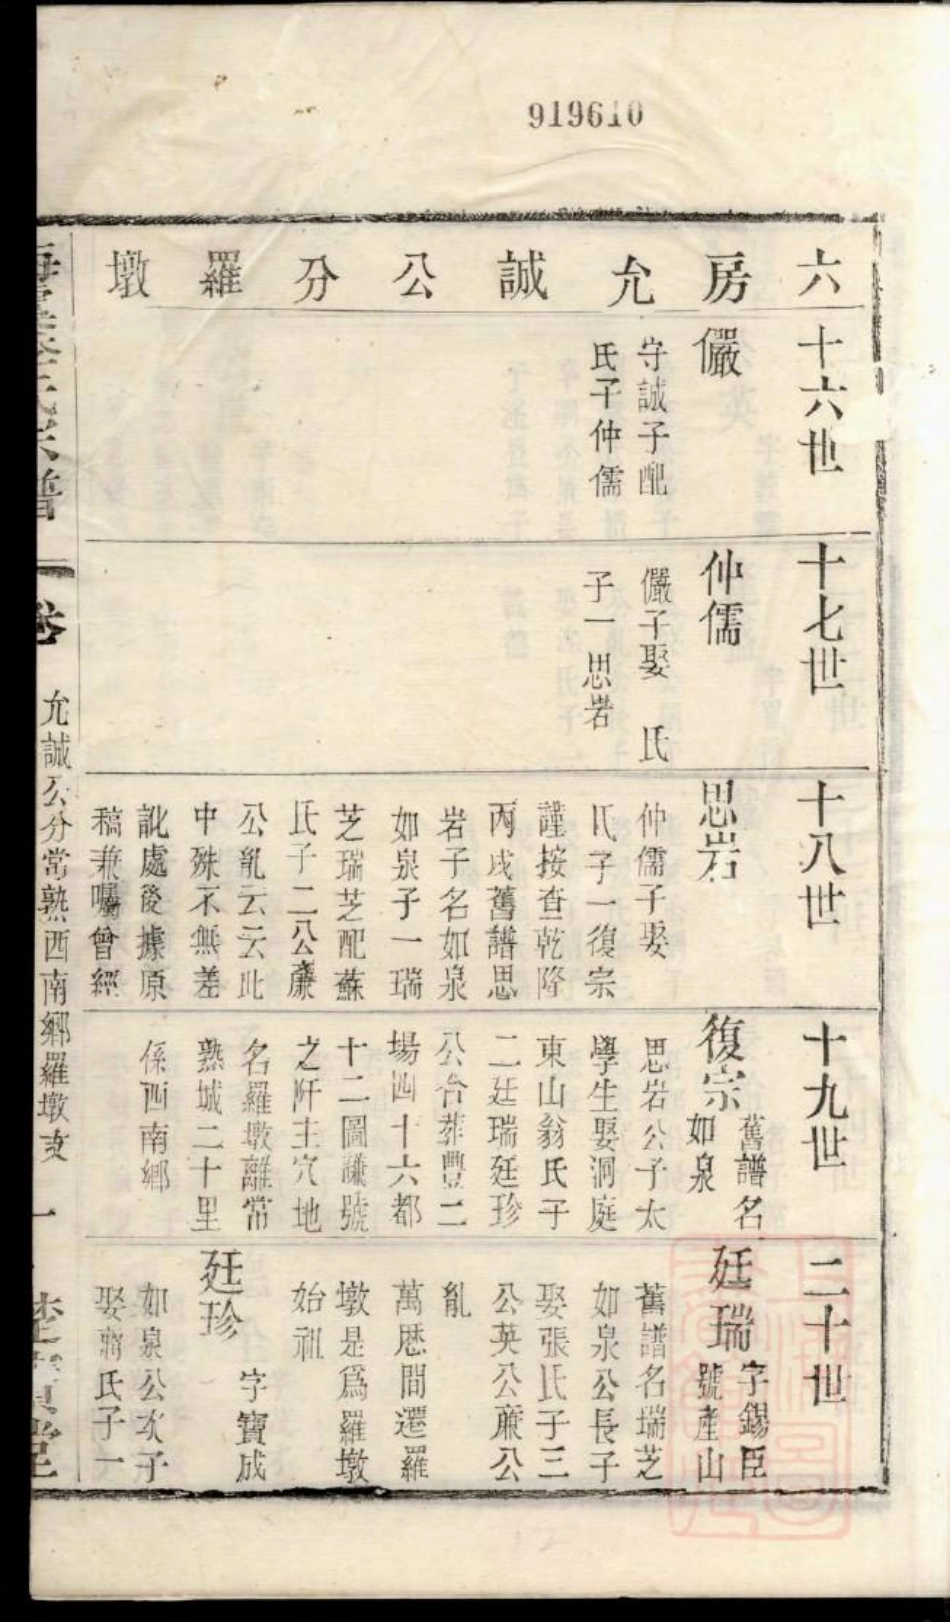 919610
六房允誠公分羅墩
十六世
儼
守誠子配
氏子仲儒
十七世
仲儒
儼子娶 氏
子一思岩
十八世
思岩
仲儒子娶
氏子一復宗
謹按查乾隆
丙戌舊譜思
岩子名如泉
如泉子一瑞
芝瑞芝配蘇
氏子二公廉
公亂云云此
中殊不無差
訛處後據原
稿兼囑曾經
十九世
復宗
舊譜名
如泉
思岩公子太
學生娶洞庭
東山翁氏子
二廷瑞廷珍
公合葬豐二
場四十六都
十二圖謙號
之阡主穴地
名羅墩離常
熟城二十里
係西南鄉
二十世
廷瑞
字錫臣
號產山
舊譜名瑞芝
如泉公長子
娶張氏子三
公英公廉公
亂
萬歷間遷羅
墩是爲羅墩
始祖
廷珍
字寶成
如泉公次子
娶蔣氏子一
氏宗譜
卷
允誠公分常熟西南鄉羅墩支
一